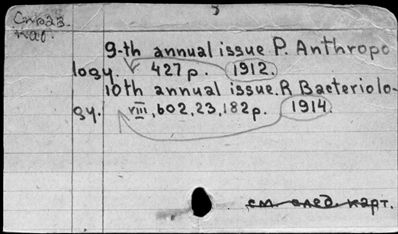 5
9-th annual issue P. Anthropo
logy. 427 p. 1912.
10th annual issue. R Bacteriolo-
gy. VIII, 602, 23, 182 p. 1914.
см. след. карт.